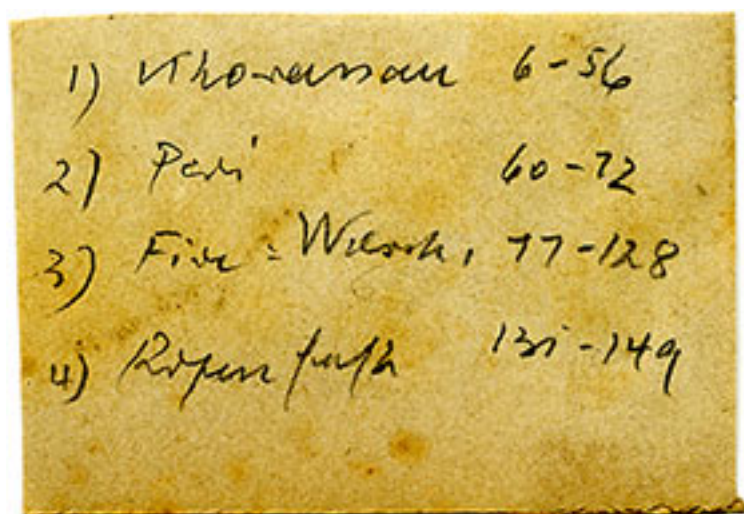 1) Khorassan 6-56
2) Peri 60-72
3) Fire-Worsh. 77-128
4) Rosenfest 131-149